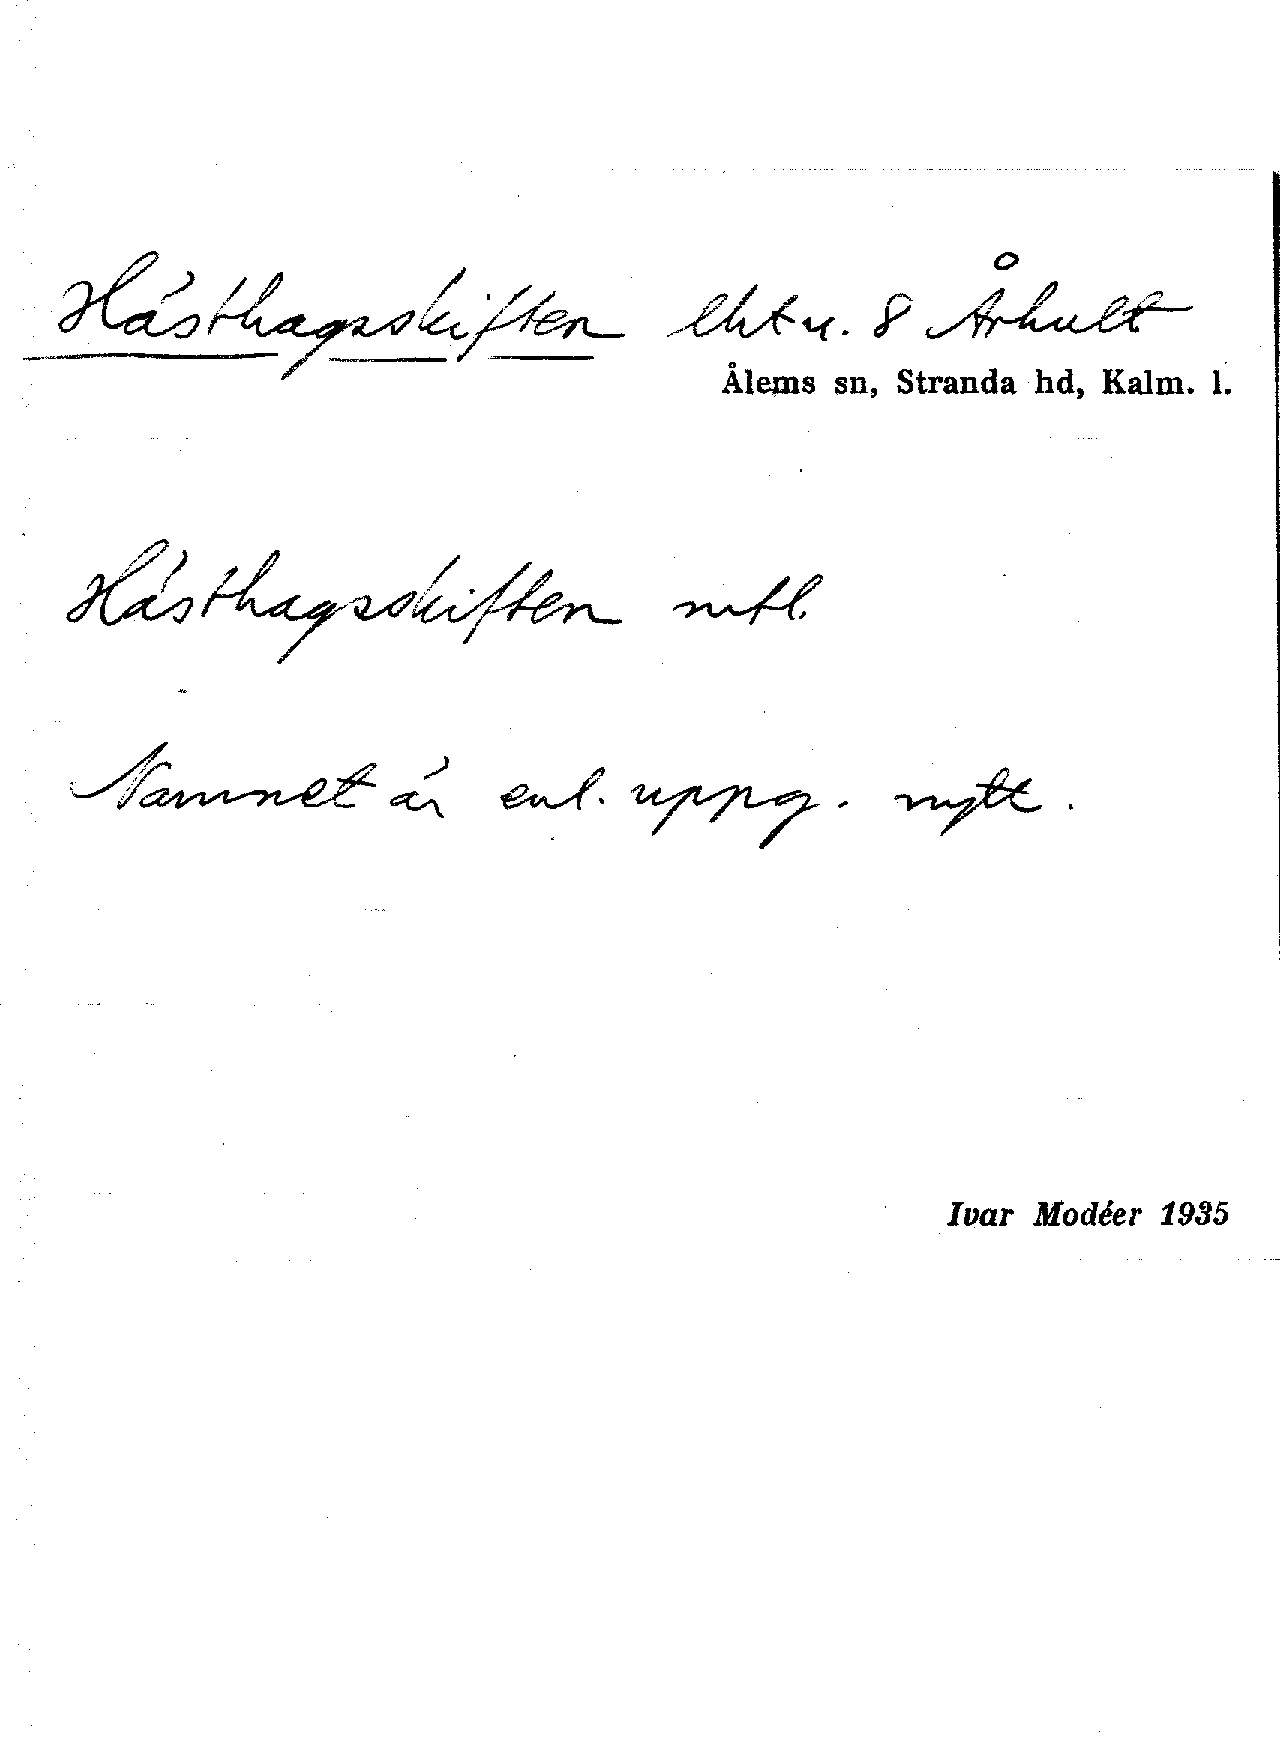 Hästhagsskiften lht u. 8 Århult
Ålems sn, Stranda hd, Kalm. l.
Hästhagsskiften mtl.
Namnet är enl. uppg. nytt.
Ivar Modéer 1935